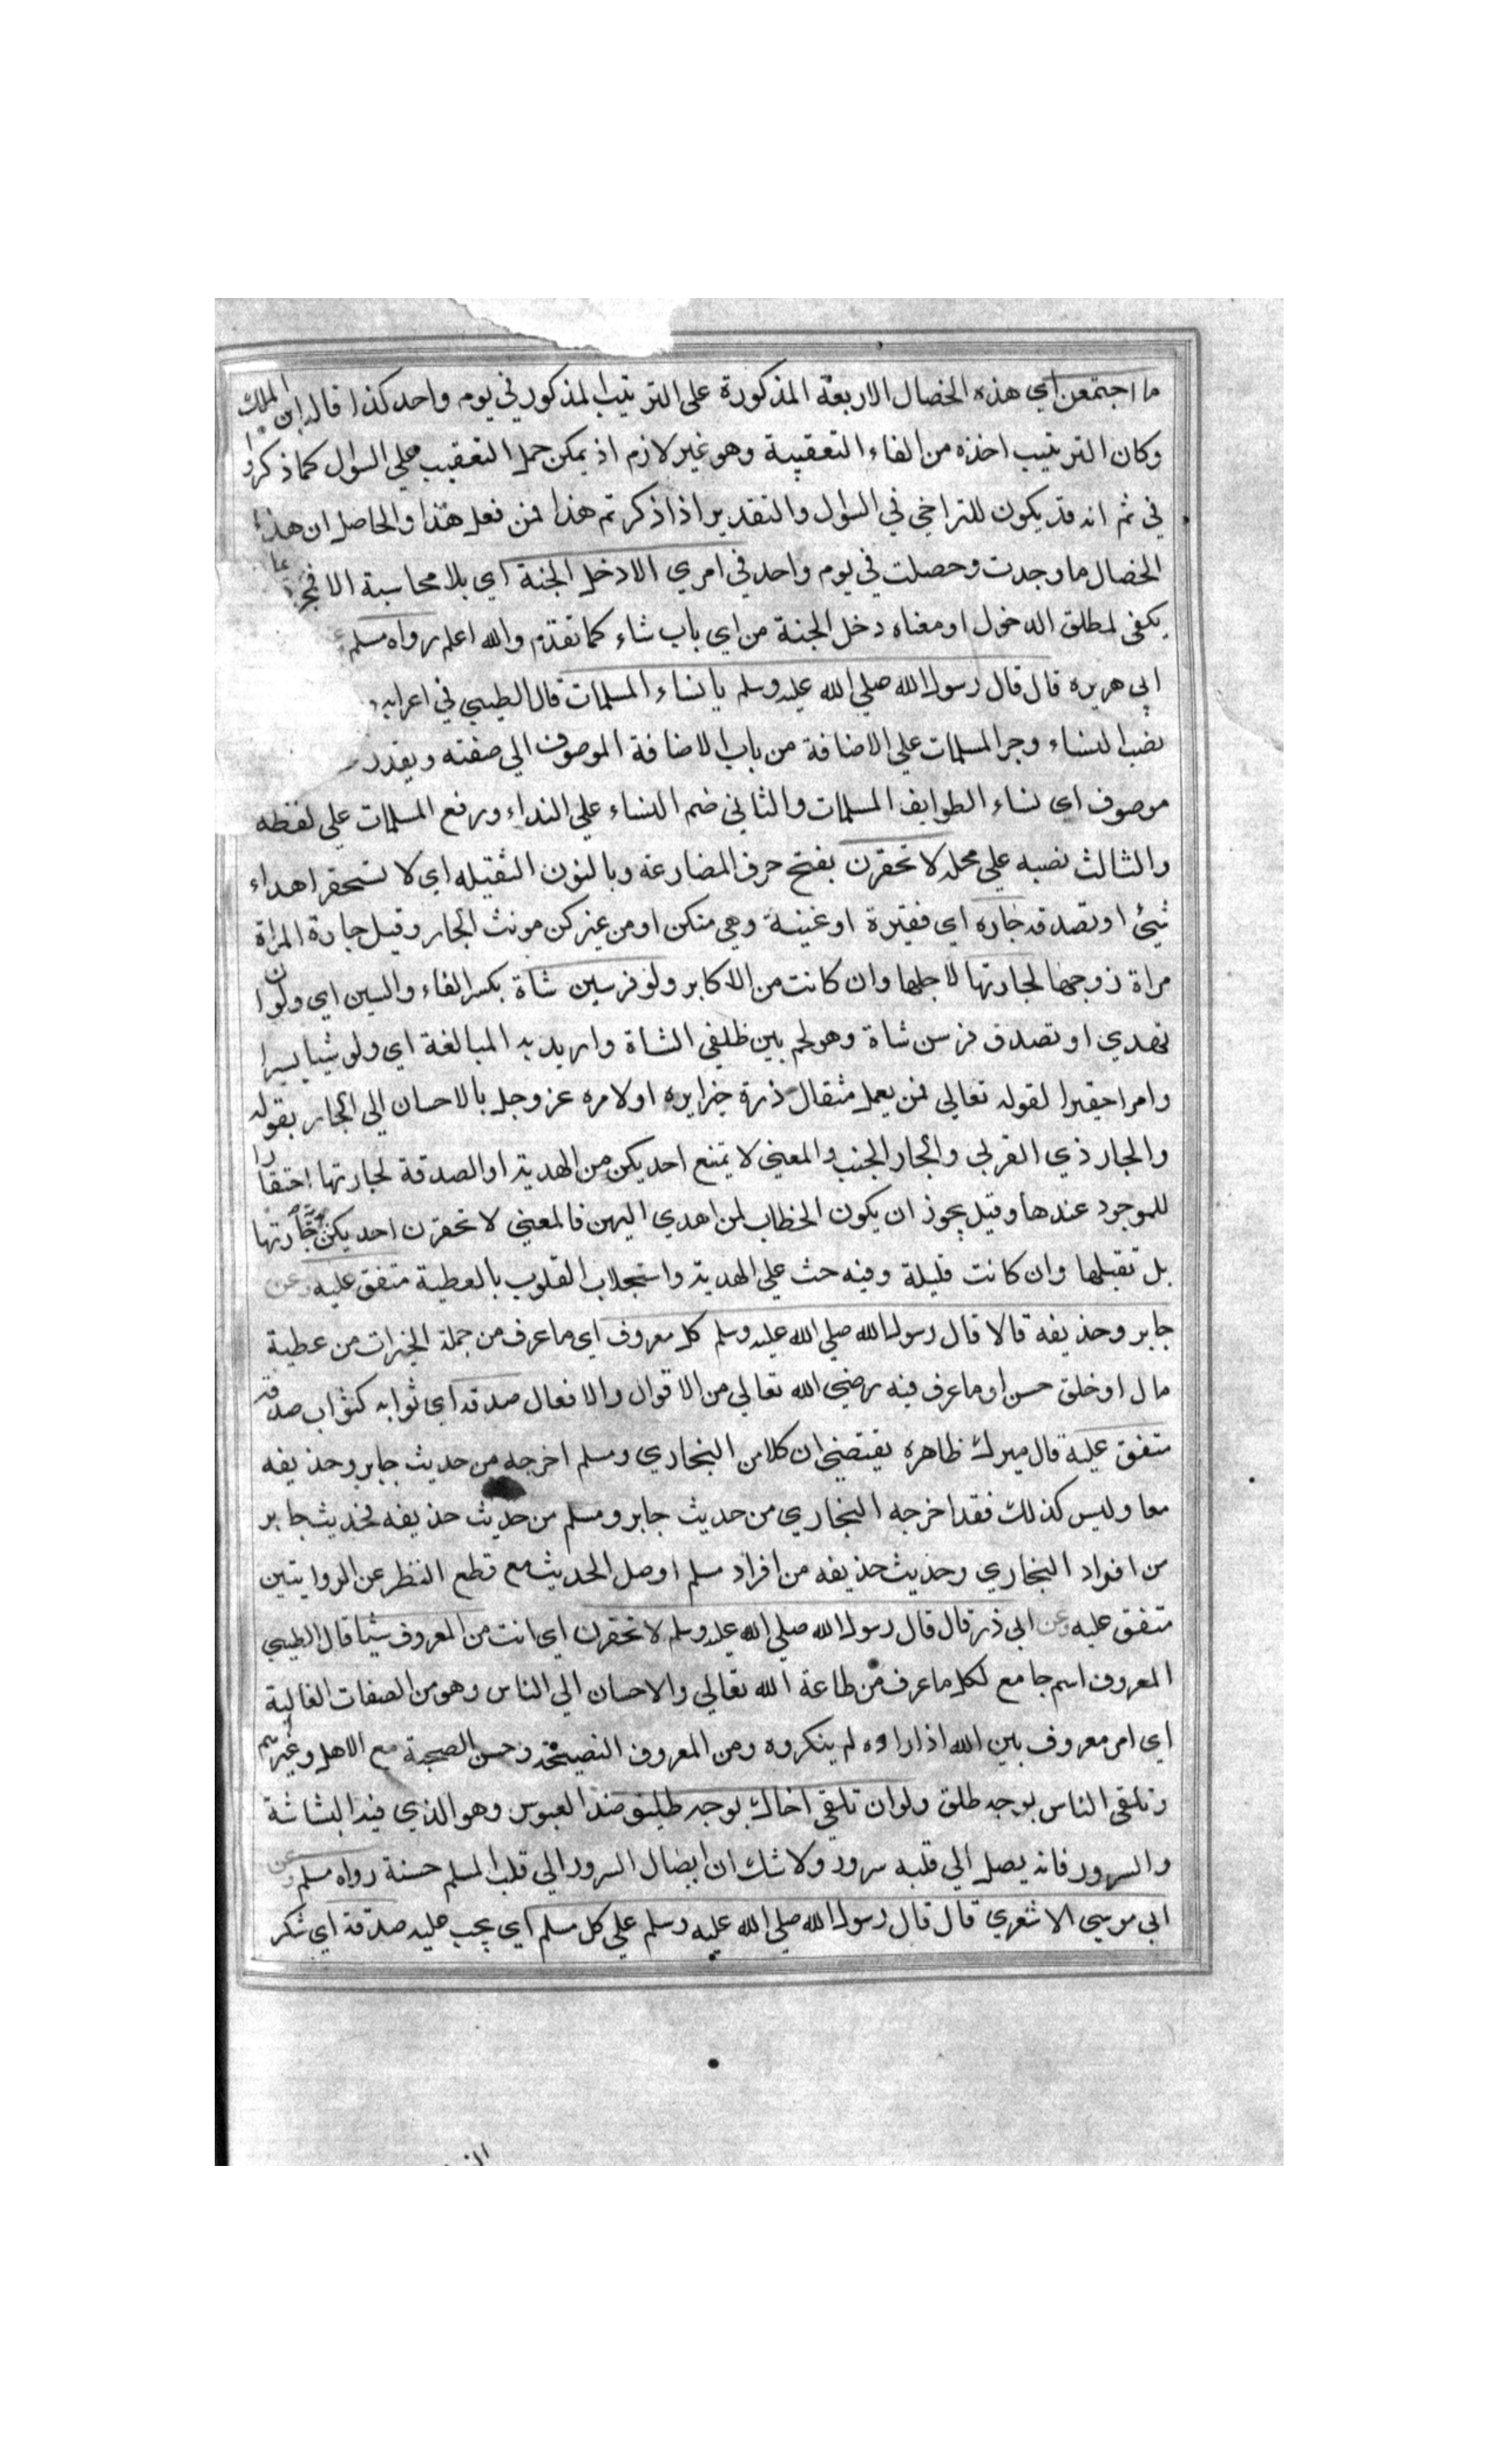 ما اجتمعن اي هذه الخصال الاربعة المذكورة على الترتيب المذكور في يوم واحد كذا قاله ابن الملك
وكان الترتيب اخذه من الفاء التعقيبية وهو غير لازم اذ يمكن حمل التعقيب علي السوال كما ذكروا
في ثم انه قد يكون للتراخي في السوال والتقدير اذا ذكرتم هذا فمن فعل هذا والحاصل ان هذه
الخصال ما وجدت وحصلت في يوم واحد في امري الا دخل الجنة اي بلا محاسبة والا فمجرد
يكفى لمطلق الدخول او معناه دخل الجنة من اي باب شاء كما تقدم والله اعلم رواه مسلم
ابي هريره قال قال رسول الله صلي الله عليه وسلم يا نساء المسلمات قال الطيبي في اعرابه
نصب النساء وجر المسلمات علي الاضافة من باب الاضافة الموصوف الي صفته ويقدر
موصوف اي نساء الطوايف المسلمات والثاني ضم النساء علي النداء ورفع المسلمات علي لفظه
والثالث نصبه علي محله لا تحقرن بفتح حرف المضارعة وبالنون الثقيله اي لا تستحقر اهداء
شيئ او تصدقه جاره اي فقيرة او غنية وهي منكن او من غيركن مونث الجار وقيل جارة المراة
مراة زوجها لجارتها لاجلها وان كانت من الاكابر ولو فرسين شاة بكسر الفاء والسين اي ولو ان
تهدي او تصدق فرسن شاة وهو لحم بين ظلفي الشاة واريد به المبالغة اي ولو شيا يسيرا
وامرا حقيرا لقوله تعالي فمن يعمل مثقال ذرة خيرا يره او لامره عز وجل بالاحسان الي الجار بقوله
والجار ذي القربي والجار الجنب والمعني لا يمتنع احديكن من الهدية او الصدقة لجارتها احتقارا
للموجود عندها وقيل يجوز ان يكون الخطاب لمن اهدي اليهن فالمعني لا تحقرن احديكن جارتها
بل تقبلها وان كانت قليلة وفيه حث علي الهدية واستجلاب القلوب بالعطية متفق عليه وعن
جابر وحذيفه قالا قال رسول الله صلي الله عليه وسلم كل معروف اي ما عرف من جملة الخيرات من عطية
مال او خلق حسن او ما عرف فيه رضي الله تعالي من الاقوال والافعال صدقه اي ثوابه كثواب صدقة
متفق عليه قال ميرك ظاهره يقتضي ان كلا من البخاري ومسلم اخرجه من حديث جابر وحذيفه
معا وليس كذلك فقد اخرجه البخاري من حديث جابر ومسلم من حديث حذيفه فحديث جابر
من افراد البخاري وحديث حذيفه من افراد مسلم اوصل الحديث مع قطع النظر عن الروايتين
متفق عليه وعن ابي ذر قال قال رسول الله صلي الله عليه وسلم لا تحقرن اي انت من المعروف شيئا قال الطيبي
المعروف اسم جامع لكل ما عرف من طاعة الله تعالي والاحسان الي الناس وهو من الصفات الغالبة
اي امر معروف بين الله اذا راوه لم ينكروه ومن المعروف النصيحة وحسن الصحبة مع الاهل وغيرهم
وتلقي الناس بوجه طلق ولو ان تلقي اخاك بوجه طليق ضد العبوس وهو الذي فيه البشاشة
والسرور فانه يصل الي قلبه سرور ولا شك ان ايصال السرور الي قلب المسلم حسنة رواه مسلم وعن
ابي موسي الاشعري قال قال رسول الله صلي الله عليه وسلم علي كل مسلم اي يجب عليه صدقة اي شكر